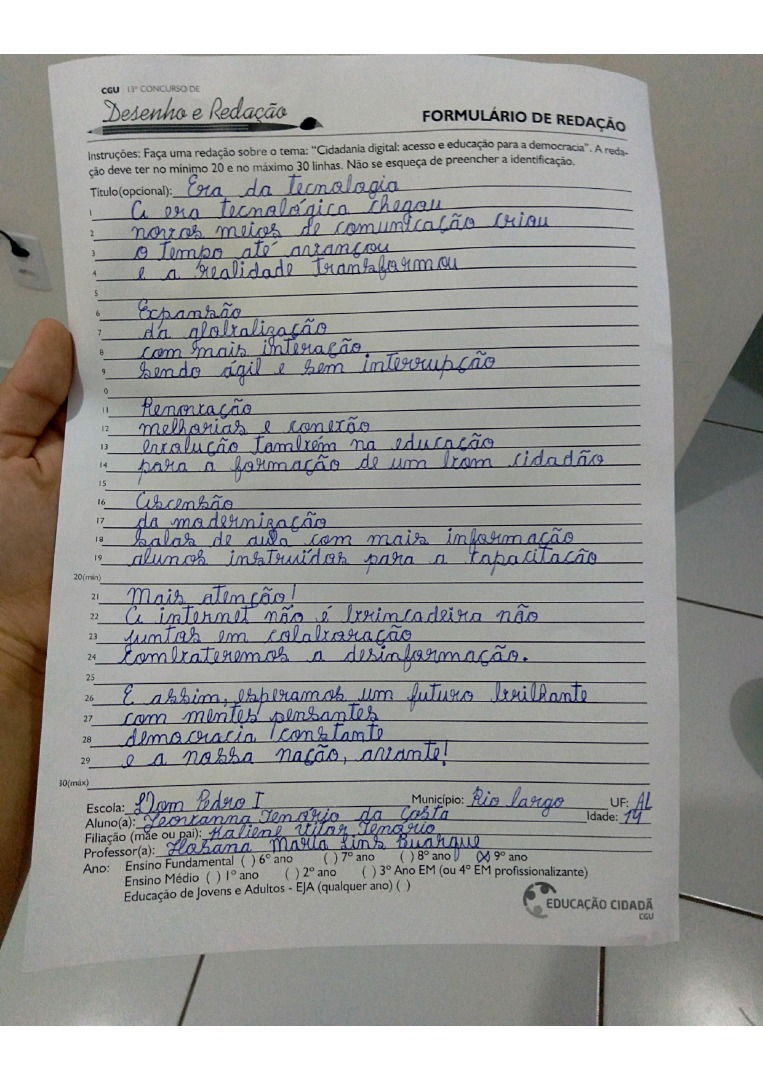 CGU 13º CONCURSO DE
Desenho e Redação
FORMULÁRIO DE REDAÇÃO
Instruções: Faça uma redação sobre o tema: "Cidadania digital: acesso e educação para a democracia". A reda-
ção deve ter no mínimo 20 e no máximo 30 linhas. Não se esqueça de preencher a identificação.
Título(opcional): Era da tecnologia
1 A era tecnológica chegou
2 novos meios de comunicação criou
3 o tempo até avançou
4 e a realidade transformou
5
6 Expansão
7 da globalização
8 com mais interação
9 sendo ágil e sem interrupção
0
11 Renovação
12 melhorias e conexão
13 evolução também na educação
14 para a formação de um bom cidadão
15
16 Ascensão
17 da modernização
18 salas de aula com mais informação
19 alunos instruídos para a capacitação
20(min)
21 Mais atenção!
22 A internet não é brincadeira não
23 juntos em colaboração
24 combateremos a desinformação.
25
26 E assim, esperamos um futuro brilhante
27 com mentes pensantes
28 democracia constante
29 e a nossa nação, avante!
30(máx)
Escola: Dom Pedro I Município: Rio largo UF: AL
Aluno(a): Geovanna Tenório da Costa Idade: 14
Filiação (mãe ou pai): Kaliene Vitor Tenório
Professor(a): Maria Lins Buarque
Ano: Ensino Fundamental ( ) 6º ano ( ) 7º ano ( ) 8º ano (X) 9º ano
Ensino Médio ( ) 1º ano ( ) 2º ano ( ) 3º Ano EM (ou 4º EM profissionalizante)
Educação de Jovens e Adultos - EJA (qualquer ano) ( )
EDUCAÇÃO CIDADÃ
CGU